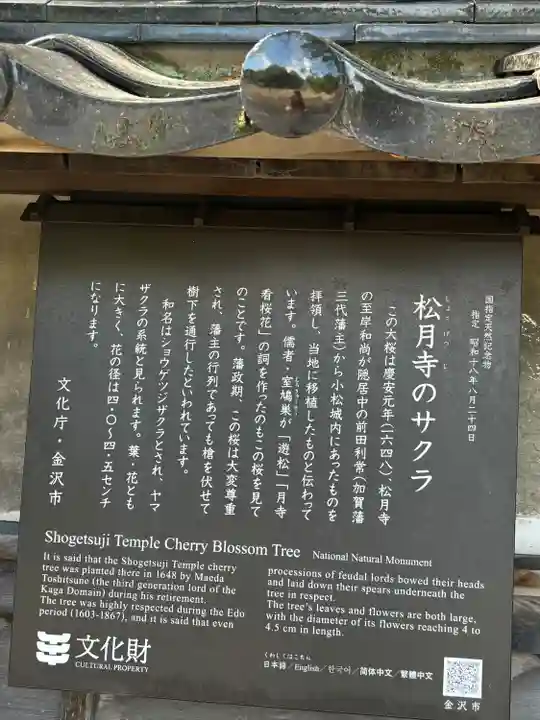 国指定天然記念物
指定 昭和十八年八月二十四日
しょうげつじ
松月寺のサクラ
この大桜は慶安元年(一六四八)、松月寺
の至岸和尚が隠居中の前田利常(加賀藩
三代藩主)から小松城内にあったものを
拝領し、当地に移植したものと伝わって
います。儒者・室鳩巣が「遊松」「月寺
看桜花」の詞を作ったのもこの桜を見て
のことです。藩政期、この桜は大変尊重
され、藩主の行列であっても槍を伏せて
樹下を通行したといわれています。
和名はショウゲツジザクラとされ、ヤマ
ザクラの系統と見られます。葉・花とも
に大きく、花の径は四・〇〜四・五センチ
になります。
文化庁・金沢市
Shogetsuji Temple Cherry Blossom Tree National Natural Monument
It is said that the Shogetsuji Temple cherry
tree was planted there in 1648 by Maeda
Toshitsune (the third generation lord of the
Kaga Domain) during his retirement.
The tree was highly respected during the Edo
period (1603-1867), and it is said that even
processions of feudal lords bowed their heads
and laid down their spears underneath the
tree in respect.
The tree's leaves and flowers are both large,
with the diameter of its flowers reaching 4 to
4.5 cm in length.
文化財
CULTURAL PROPERTY
くわしくはこちら
日本語/English/한국어/简体中文/繁體中文
金沢市